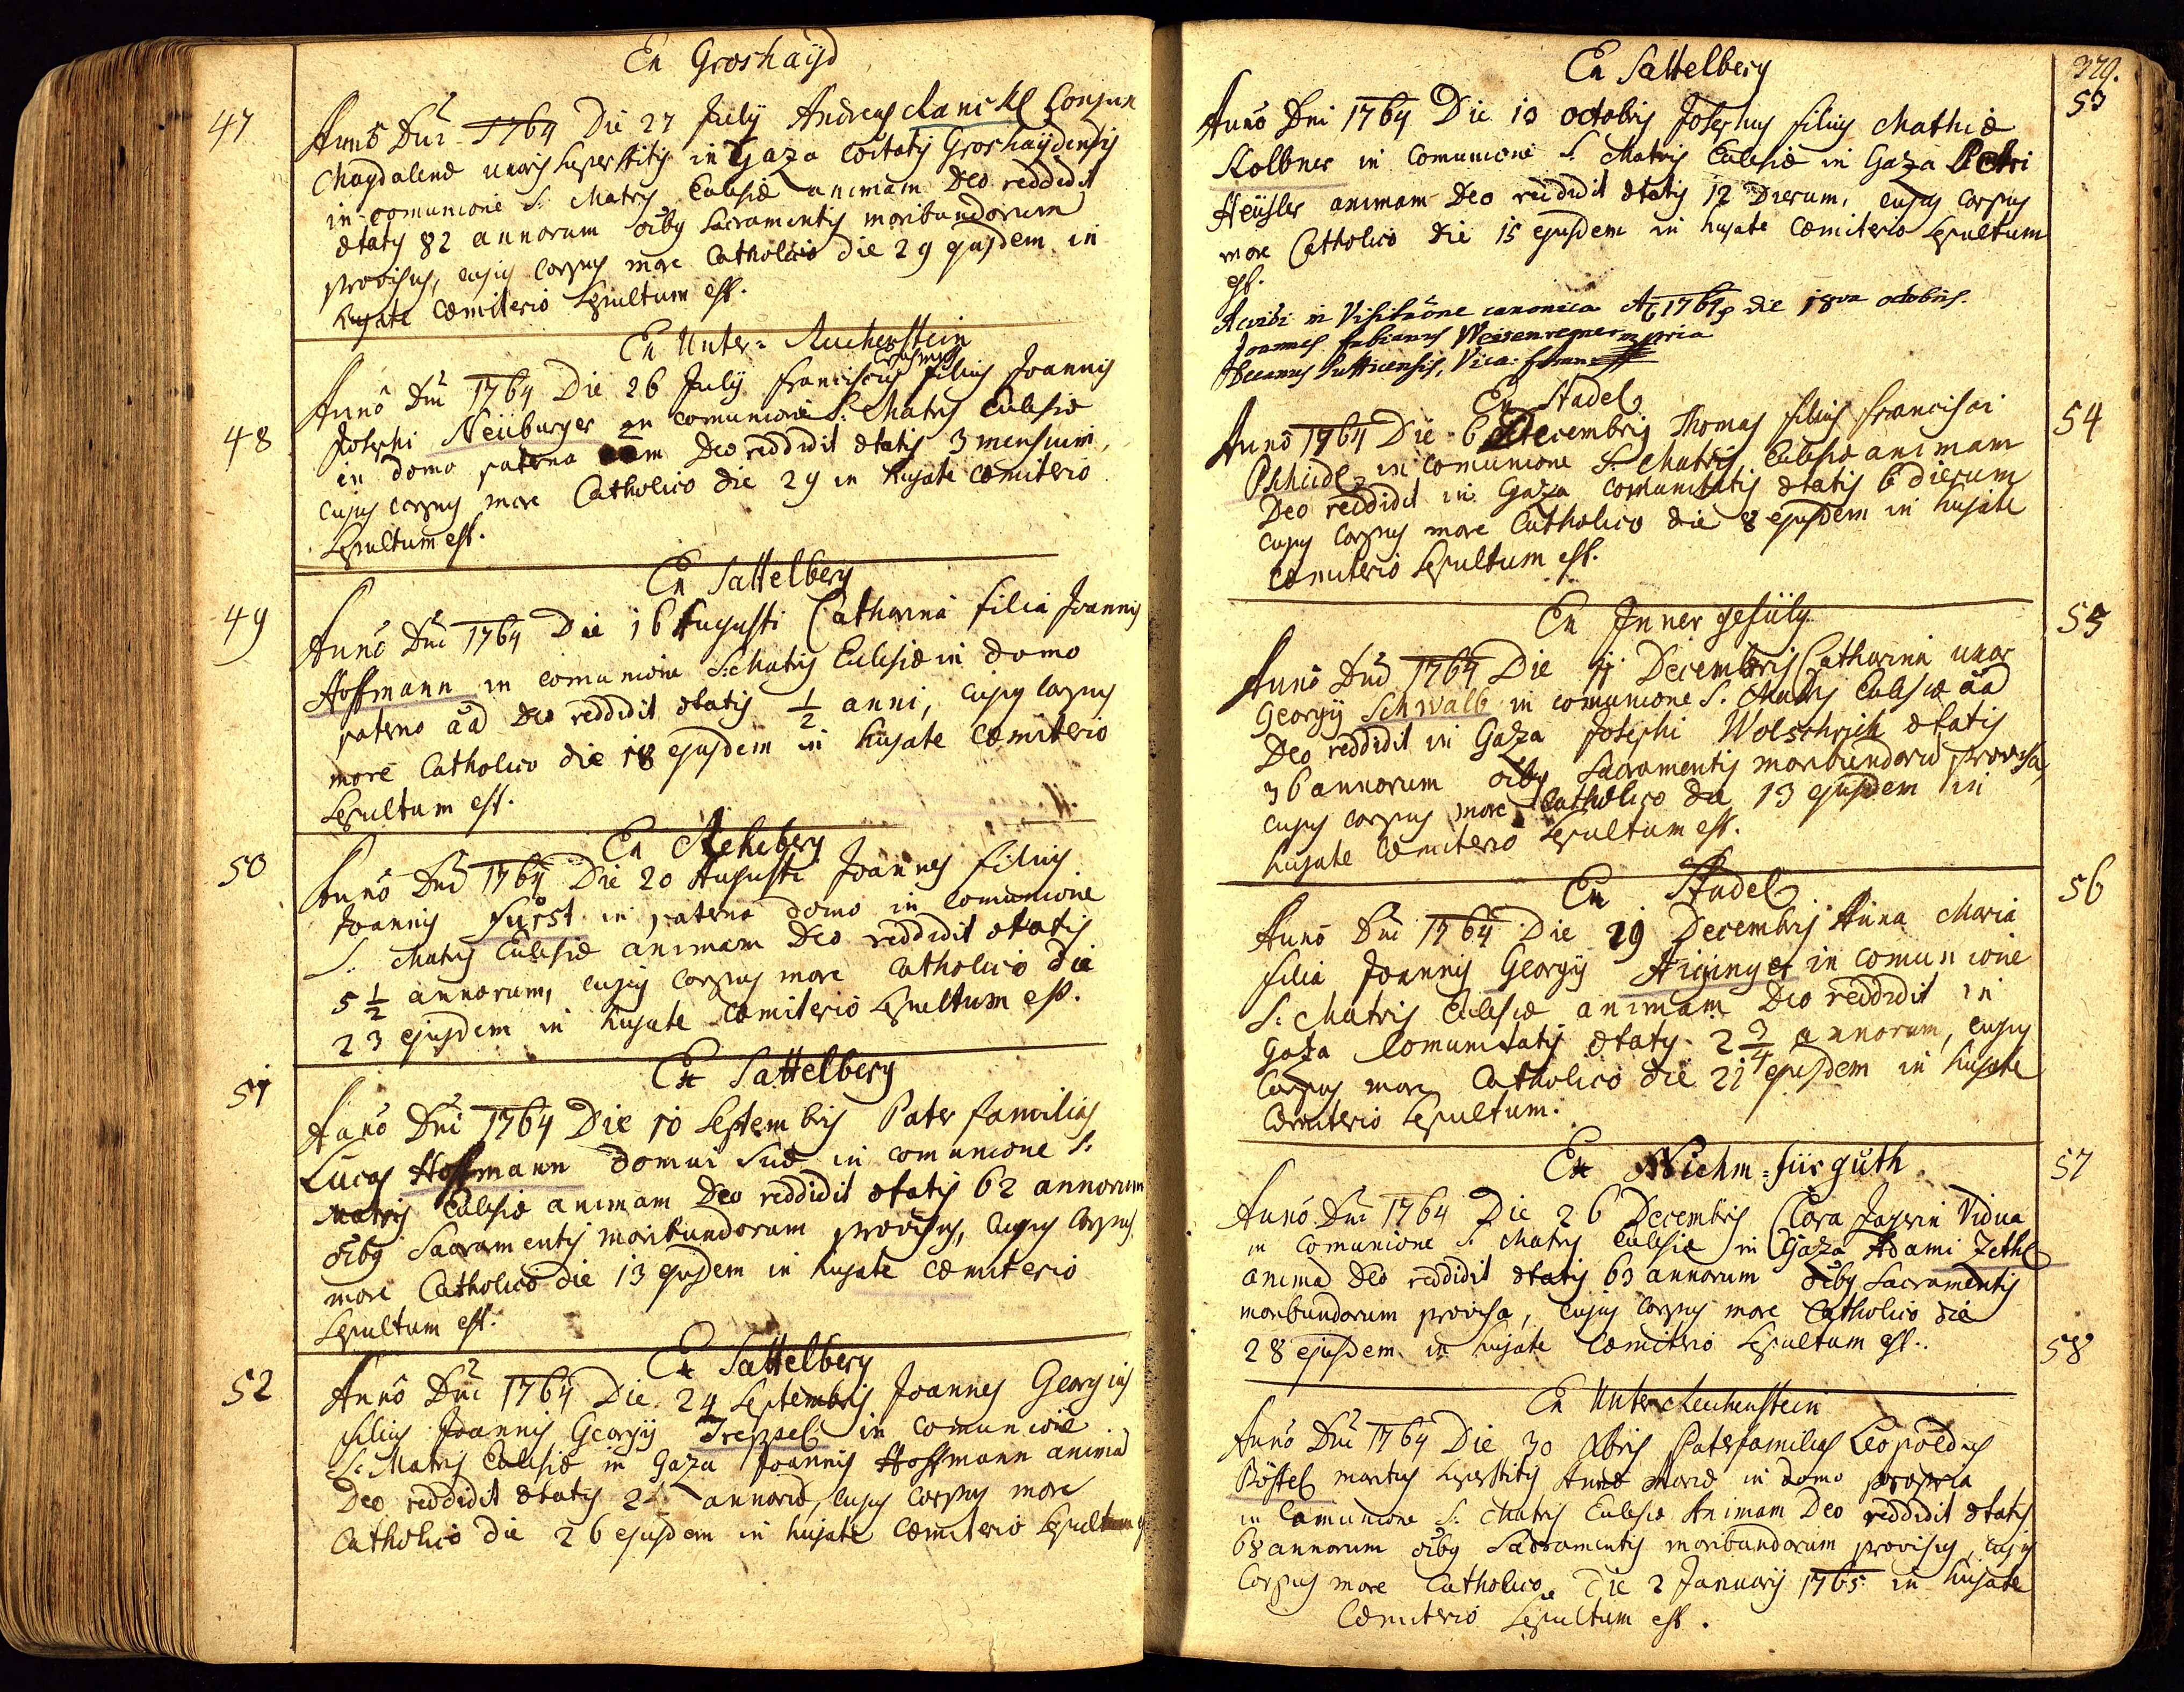 Ex Groshayd
47
Anno Dni 1764 Die 27 July Andreas Raniskl Conjux
Magdalenæ uxoris superstitis in Gaza Coitatis Groshaydensis
in comunione S: Matris Ecclesiæ animam Deo reddidit
ætatis 82 annorum oibus Sacramentis moribundorum
provisus, cujus Corpus more Catholico die 29 ejusdem in
hujate Cæmiterio Sepultum est.
Ex Unter= Reichenstein
48
Anno Dni 1764 Die 26 July Franciscus filius Joannis
Josephi Neüburger in comunione S: Matris Ecclesiæ
in domo paterna Deo reddidit ætatis 3 mensium,
cujus corpus more Catholico die 29 in hujate cæmiterio
Sepultum est.
Ex Sattelberg
49
Anno Dni 1764 Die 16 Augusti Catharina filia Joannis
Hoffmann in comunione S: Matris Ecclesiæ in domo
paterno aad Deo reddidit ætatis 1/2 anni, cujus Corpus
more Catholico die 18 ejusdem in hujate Cæmiterio
Sepultum est.
Ex Rehberg
50
Anno Dni 1764 Die 20 Augusti Joannes filius
Joannis Fürst in paterna domo in comunione
S: Matris Ecclesiæ animam Deo reddidit ætatis
5 1/2 annorum, cujus Corpus more Catholico die
23 ejusdem in hujate Cæmiterio Sepultum est.
Ex Sattelberg
51
Anno Dni 1764 Die 10 Septembris Pater familias
Lucas Hoffmann domui suæ in comunione S:
Matris Ecclesiæ animam Deo reddidit ætatis 62 annorum
oibus Sacramentis moribundorum provisus, cujus Corpus
more Catholico die 13 ejusdem in hujate cæmiterio
Sepultum est.
Ex Sattelberg
52
Anno Dni 1764 Die 24 Septembris Joannes Georgius
filius Joannis Georgy Treppel in comunione
S: Matris Ecclesiæ in Gaza Joannis Hoffmann animã
Deo reddidit ætatis annorũ, cujus Corpus more
Catholico die 26 ejusdem in hujate Cæmiterio Sepultum
379.
Ex Sattelberg
53
Anno Dni 1764 Die 13 octobris Josephus filius Mathiæ
Kolbner in comunione S: Matris Ecclesiæ in Gaza Petri
Heüsler animam Deo reddidit ætatis 12 Dierum, cujus Corpus
more Catholico die 15 ejusdem in hujate Cæmiterio Sepultum
est.
Revidi in Visitaõne canonica A 1764 die 18va octobris.
Joannes Fabianus Weisenregner mpria
Decanus Sutticensis, Vica: foran:
Ex Stadel
54
Anno 1764 Die 6 Decembris Thomas filius Francisci
Pscheidl in comunione S: Matris Ecclesiæ animam
Deo reddidit in Gaza comunitatis ætatis 6 dierum
cujus Corpus more Catholico die 8 ejusdem in hujate
cæmiterio Sepultum est.
Ex Innergefülg
55
Anno Dni 1764 Die 11 Decembris Catharina uxor
Georgy Schwalb in comunione S. Matris Ecclesiæ aad
Deo reddidit in Gaza Josephi Wolschrich ætatis
36 annorum oibus Sacramentis moribundorũ provisa,
cujus corpus more Catholico die 13 ejusdem in
hujate Cæmiterio Sepultum est.
Ex Stadel
56
Anno Dni 1764 Die 19 Decembris Anna Maria
filia Joannis Georgy in comunione
S: Matris Ecclesiæ animam Deo reddidit in
Gaza Comunitatis ætatis 2 3/4 annorum, cujus
Corpus more Catholico die 21 ejusdem in hujate
Cæmiterio Sepultum.
57
Anno Dni 1764 Die 26 Decembris Clara Vidua
in comunione S: Matris Ecclesiæ in Gaza Adami Zethl
animã Deo reddidit ætatis 63 annorum oibus Sacramentis
moribundorum provisa, cujus Corpus more Catholico die
28 ejusdem in hujate Cæmiterio Sepultum est.
58
Ex Unterreichenstein
Anno Dni 1764 Die 30 Xbris Paterfamilias Leopoldus
Böstel maritus superstitis Annæ Mariæ in domo propria
in Comunione S: Matris Ecclesiæ Animam Deo reddidit ætatis
68 annorum oibus Sacramentis moribundorum provisus, cujus
Corpus more Catholico Die 2 January 1765 in hujate
Cæmiterio Sepultum est.